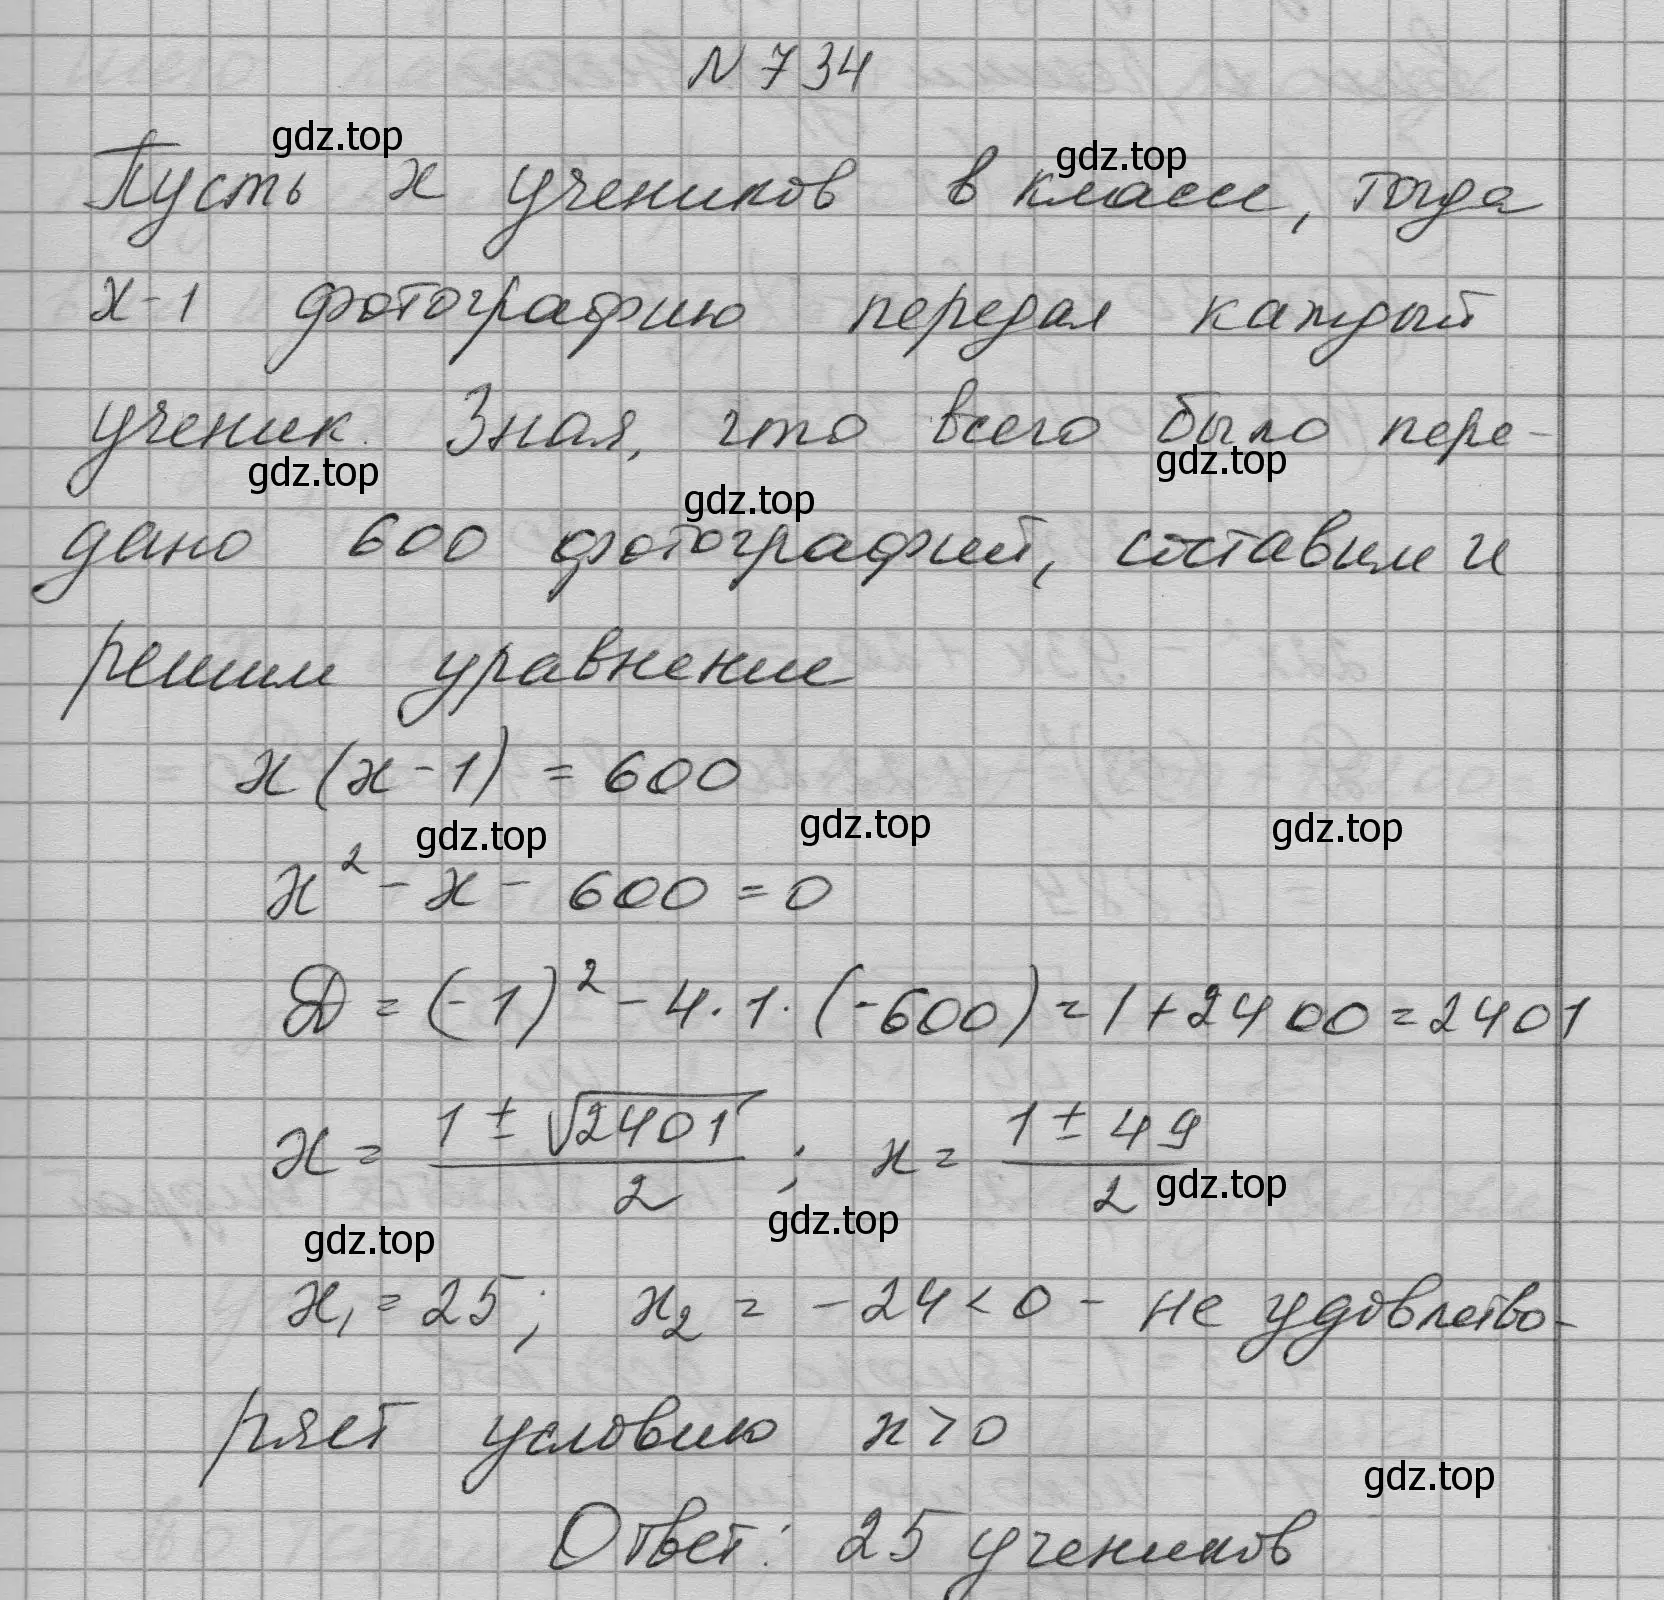 N 734
gdz.top
gdz.top
Пусть x учеников в классе, тогда
x-1 фотографию передал каждый
ученик. Зная, что всего было пере-
gdz.top
gdz.top
gdz.top
дано 600 фотографий, составим и
решим уравнение
x(x-1) = 600
gdz.top
gdz.top
gdz.top
x² - x - 600 = 0
D = (-1)² - 4·1·(-600) = 1 + 2400 = 2401
x = (1 ± √2401)/2 ; x = (1 ± 49)/2
gdz.top
gdz.top
gdz.top
x₁ = 25; x₂ = -24 < 0 - не удовлетво-
ряет условию x > 0
gdz.top
Ответ: 25 учеников